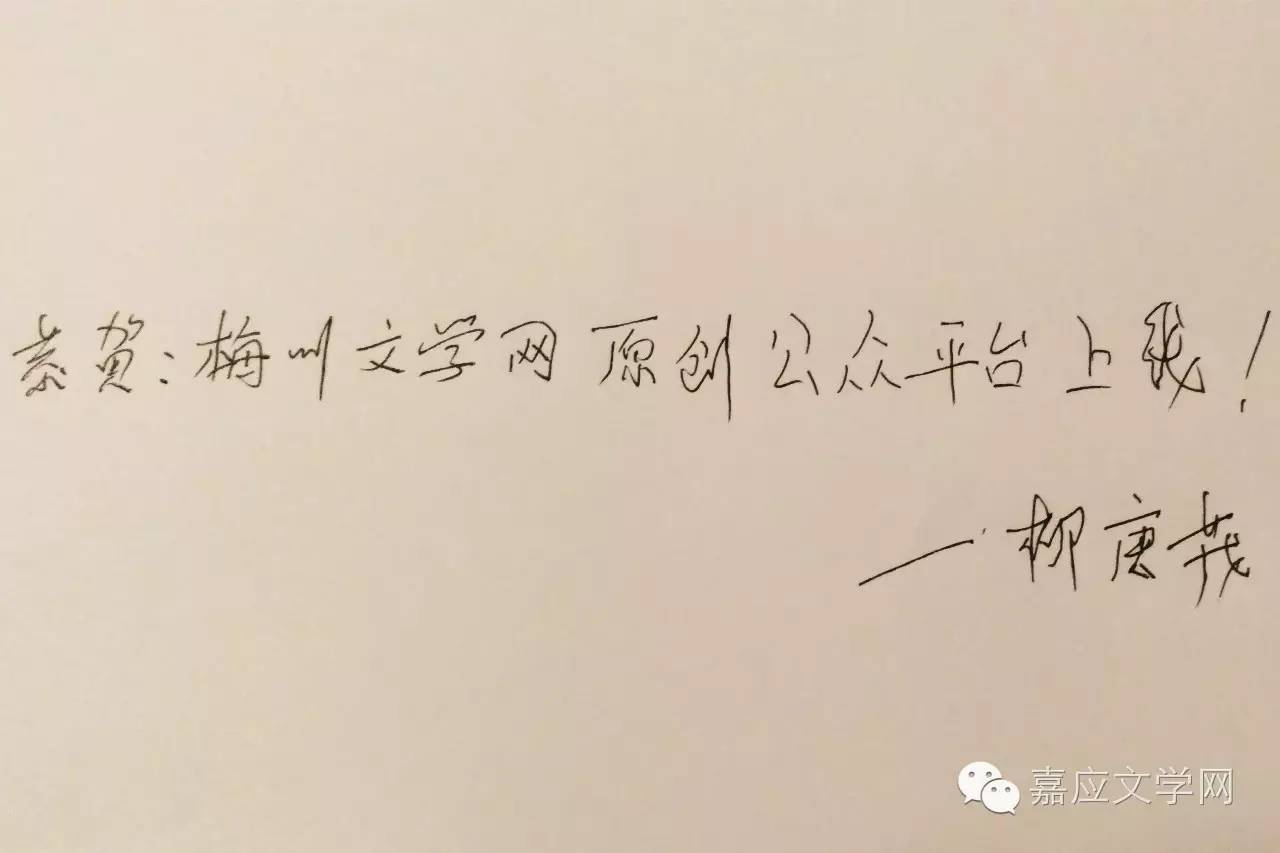 恭贺:梅州文学网原创公众平台上线!
一柳唐
嘉应文学网